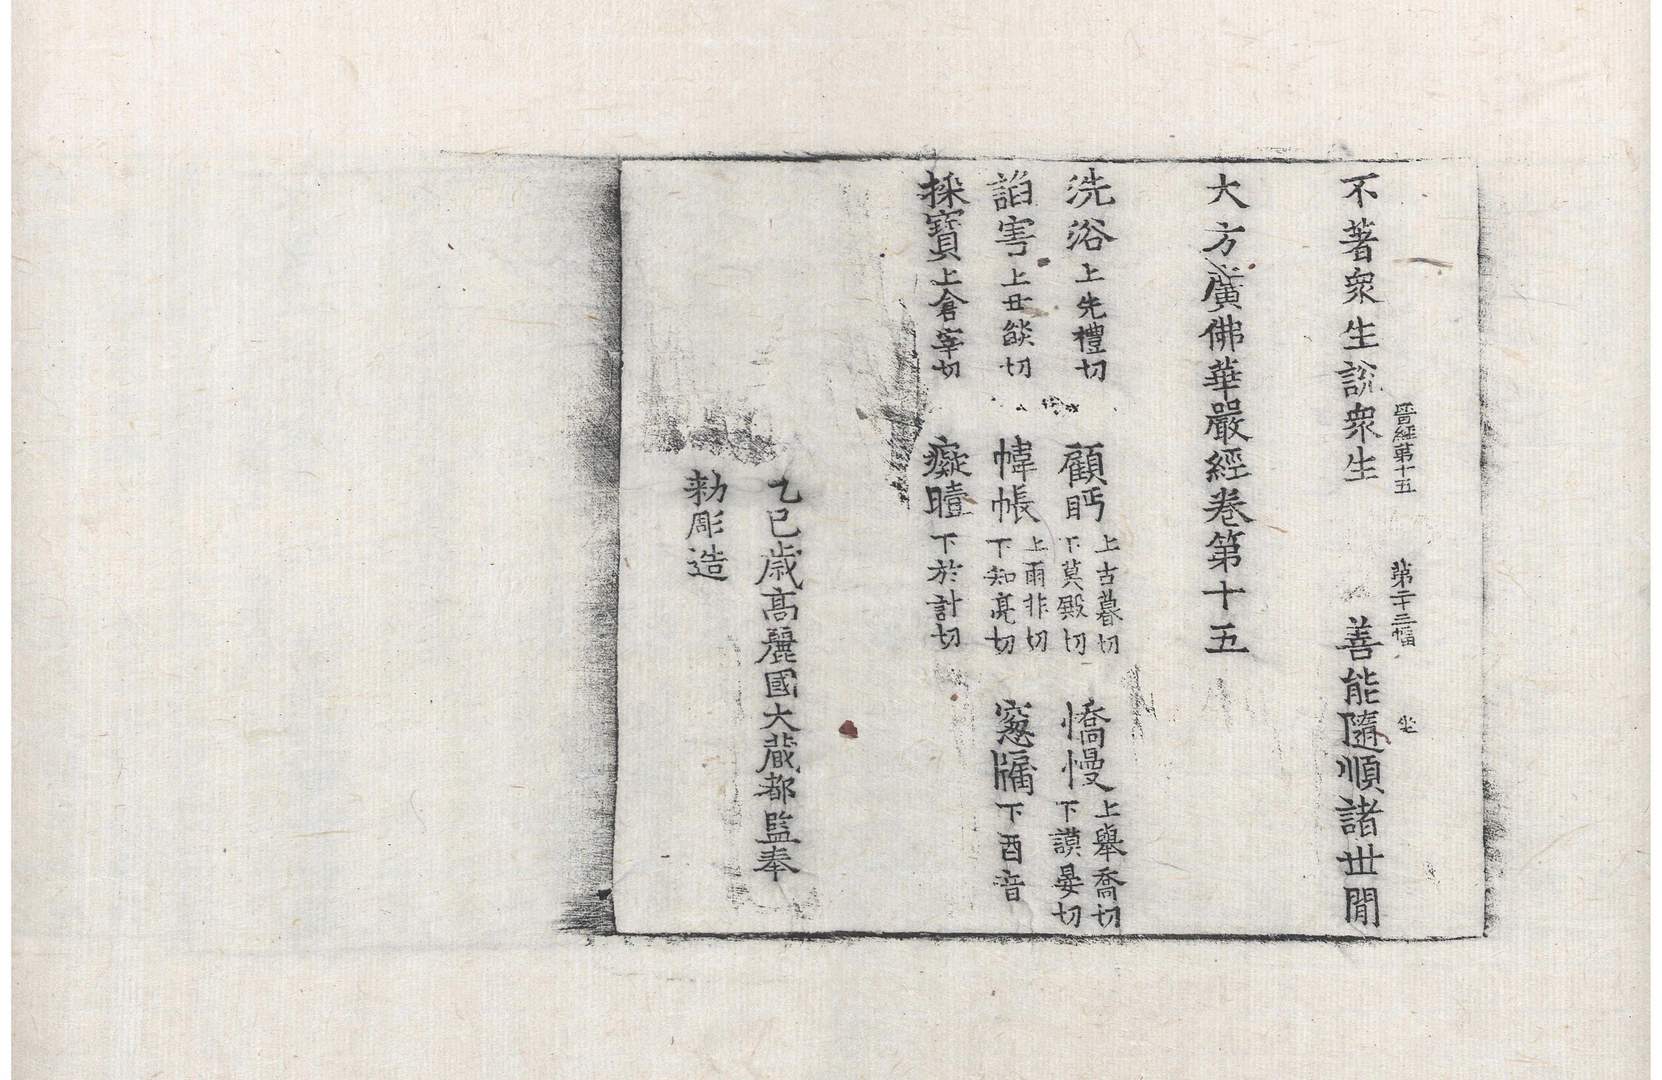 晋經第十五 第二十三幅 坐
不著衆生說衆生 善能隨順諸世閒
大方廣佛華嚴經卷第十五
洗浴上先禮切 顧眄上古暮切下莫殿切 憍慢上舉喬切下謨晏切
諂害上丑燄切 幃帳上雨非切下知亮切 窓牖下酉音
採寶上倉宰切 癡曀下於計切
乙巳歳高麗國大藏都監奉
勑彫造